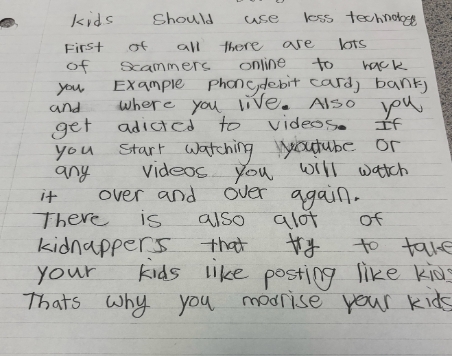 kids should use less technology
First of all there are lots
of scammers online to hack
you Example phone, debit card, bank,
and where you live. Also you
get adicted to videos. If
you start watching Youtube or
any videos you will watch
it over and over again.
There is also alot of
kidnappers that try to take
your kids like posting like kids
Thats why you modrise your kids